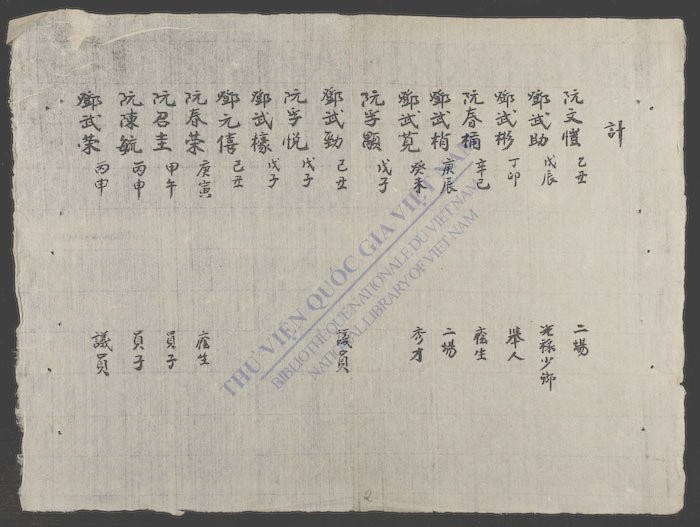 計
阮文愷 己丑 二場
鄧武助 戊辰 光祿少卿
鄧武彬 丁卯 舉人
阮春桶 辛巳 廕生
鄧武梢 庚辰 二場
鄧武莧 癸未 秀才
阮字顯 戊子
鄧武勁 己丑 議員
阮字悅 戊子
鄧武檺 戊子
鄧元僖 己丑
阮春荣 庚寅 廕生
阮召圭 甲午 員子
阮陳毓 丙申 員子
鄧武荣 丙申 議員
THƯ VIỆN QUỐC GIA VIỆT NAM
BIBLIOTHÈQUE NATIONALE DU VIETNAM
NATIONAL LIBRARY OF VIETNAM
2